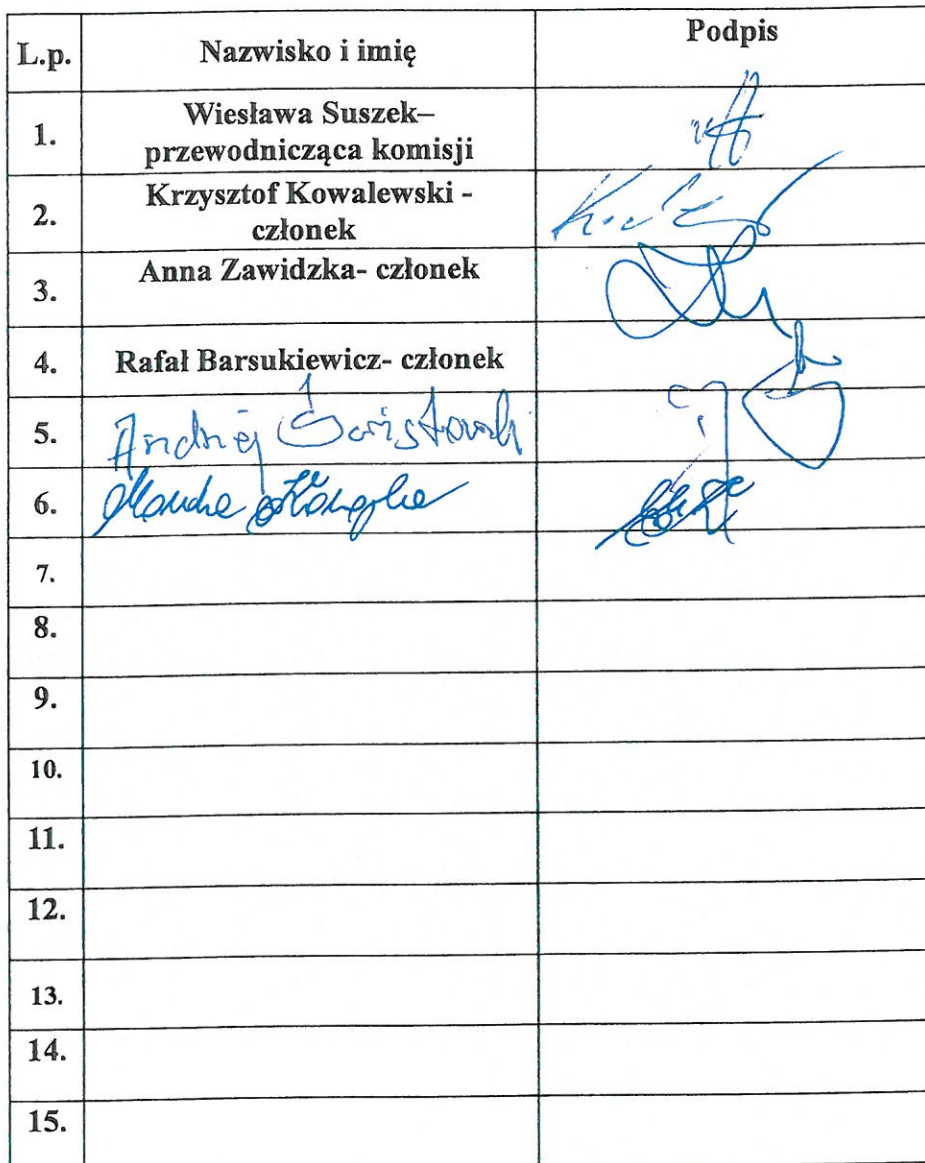 L.p. Nazwisko i imię Podpis
1. Wiesława Suszek–
przewodnicząca komisji
2. Krzysztof Kowalewski -
członek
3. Anna Zawidzka- członek
4. Rafał Barsukiewicz- członek
5. Andrzej
6.
7.
8.
9.
10.
11.
12.
13.
14.
15.